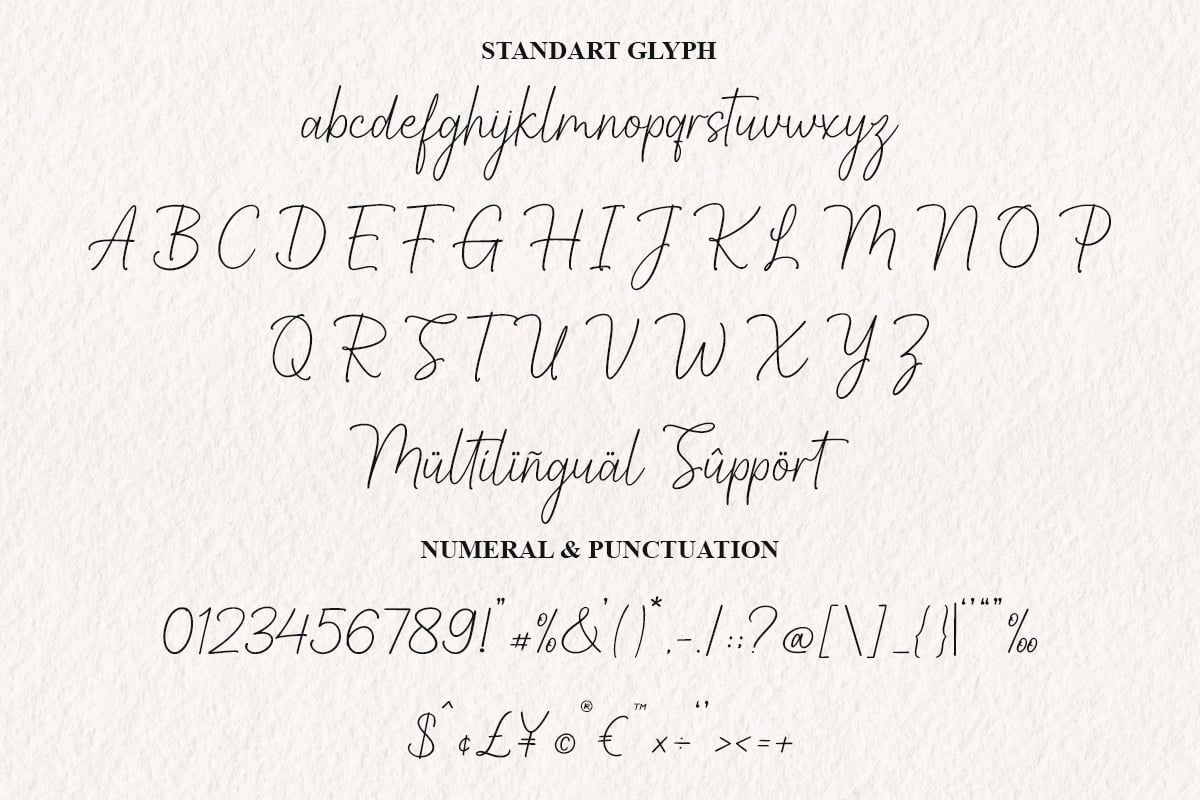 STANDART GLYPH
abcdefghijklmnopqrstuvwxyz
A B C D E F G H I J K L M N O P
Q R S T U V W X Y Z
Mültilïñguäl Sûppört
NUMERAL & PUNCTUATION
0123456789!"#%&'()*,-./:;?@[\]_{}|‘’“”‰
$^¢£¥©®€™×÷‘’><=+